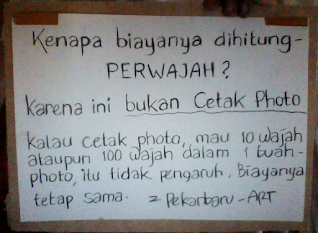 Kenapa biayanya dihitung-
PERWAJAH?
Karena ini bukan Cetak Photo
Kalau cetak photo, mau 10 wajah
ataupun 100 wajah dalam 1 buah-
photo, itu tidak pengaruh. Biayanya
tetap sama. = Pekanbaru-ART